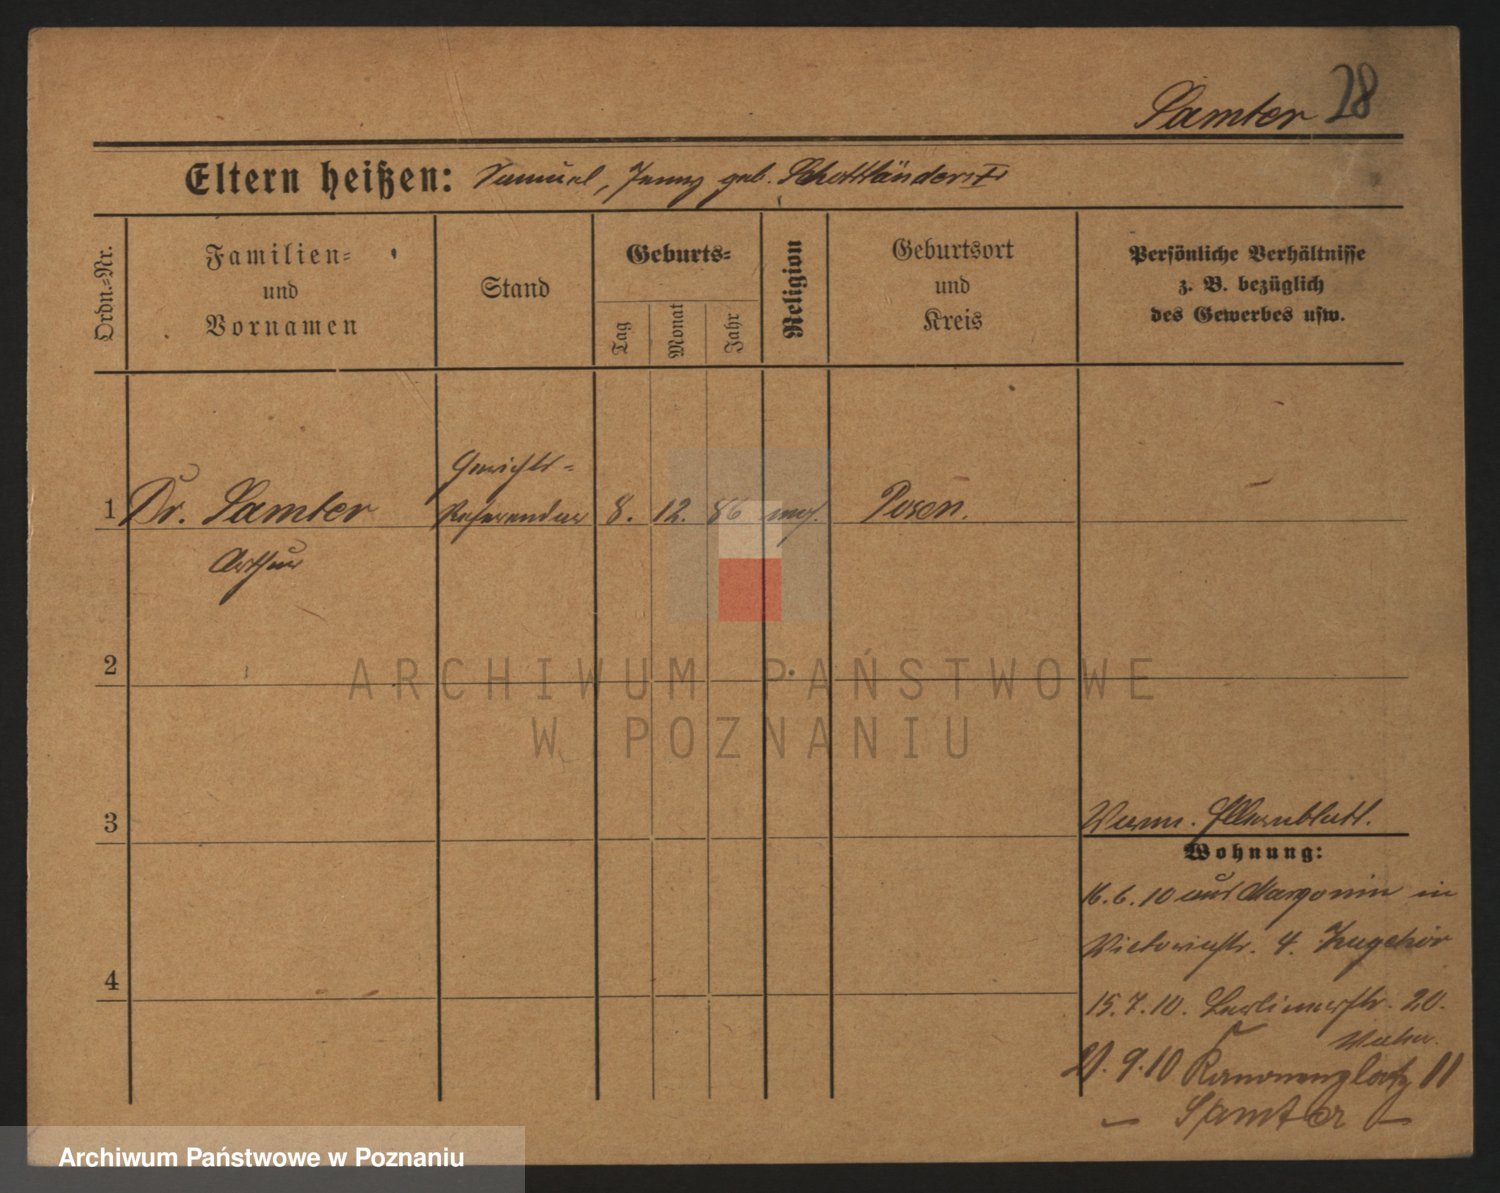 Samter 28
Eltern heißen: Samuel, Jenny geb. Schottländer
Ordn.-Nr.
Familien-
und
Vornamen
Stand
Geburts-
Tag
Monat
Jahr
Religion
Geburtsort
und
Kreis
Persönliche Verhältnisse
z. B. bezüglich
des Gewerbes usw.
Gerichts-
1 Dr. Samter Referendar 8. 12. 86 mos. Posen.
Arthur
2
ARCHIWUM PAŃSTWOWE
W POZNANIU
3
Elternblatt.
Wohnung:
16.6.10 aus Margonin in
Victoriastr. 4.
4
15.7.10. Berlinerstr. 20.
9.10 Kanonenplatz 11
– Samter –
Archiwum Państwowe w Poznaniu